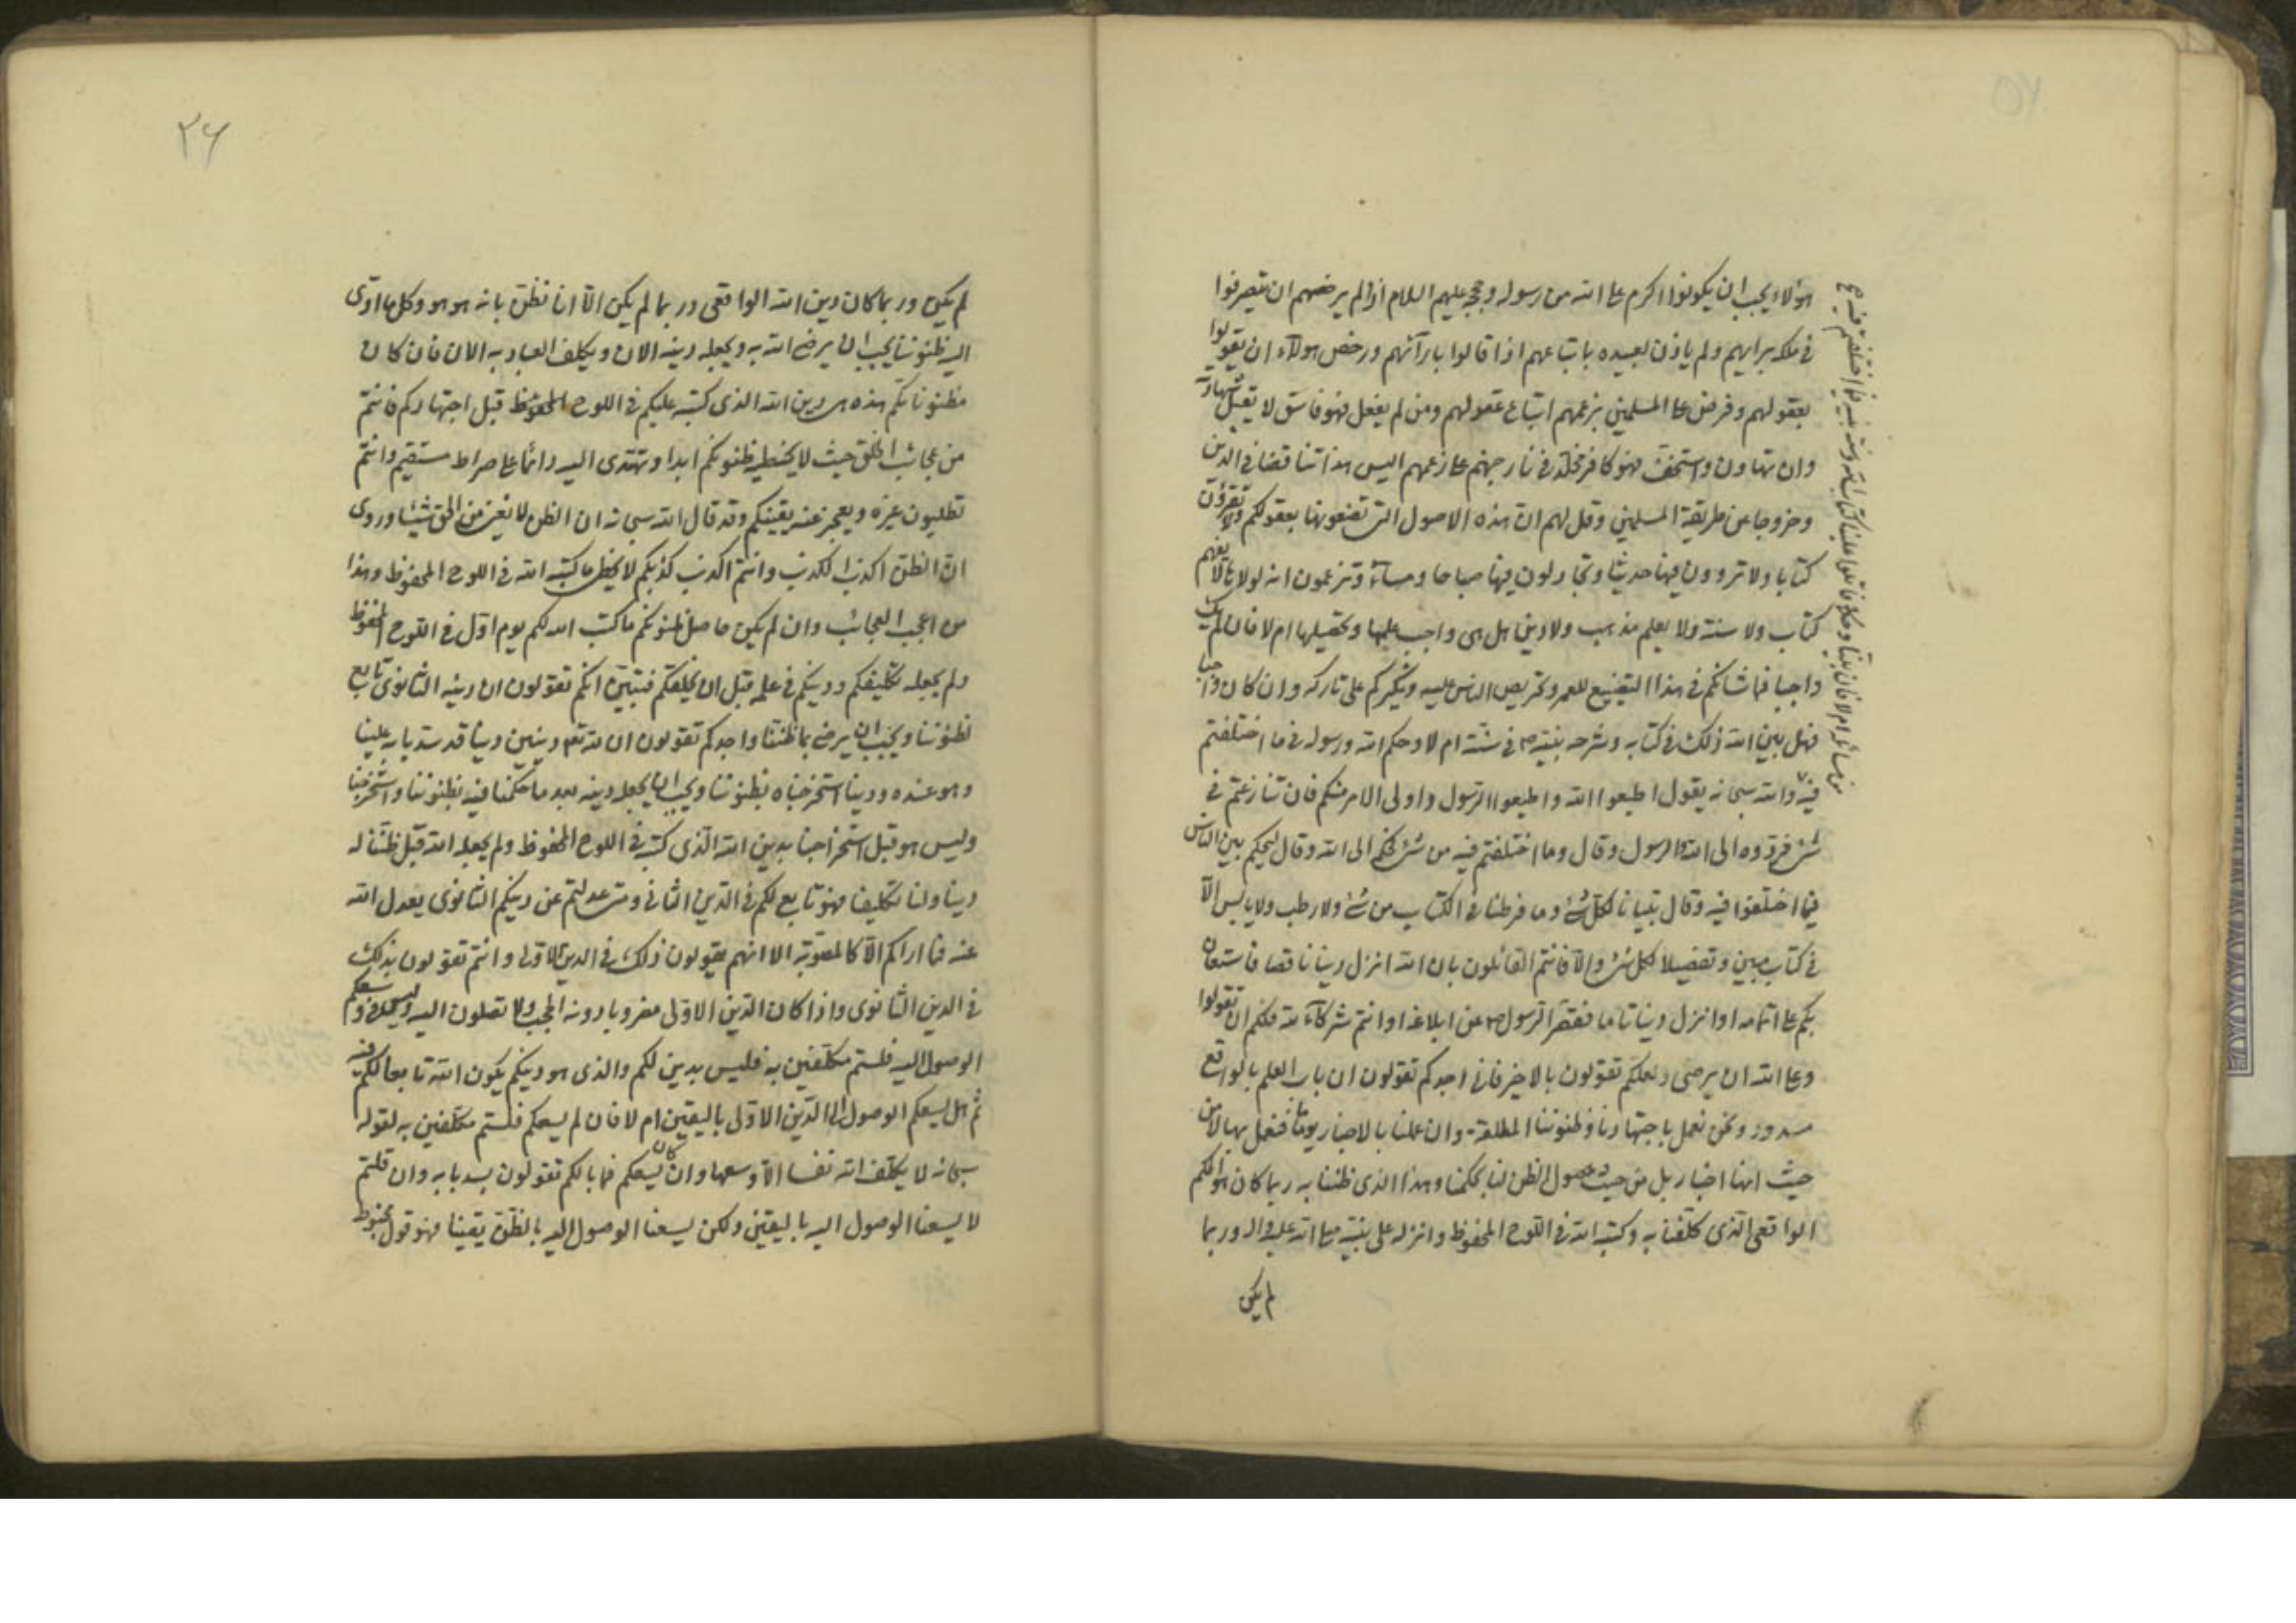 هؤلاء يجب ان يكونوا اكرم على الله من رسوله وحججه عليهم السلام اذ لم يرخصهم ان يتصرفوا
في ملكه برايهم ولم ياذن لعبيده باتباعهم اذا قالوا بارآئهم ورخص هولآء ان يقولوا
بعقولهم وفرض على المسلمين بزعمهم اتباع عقولهم ومن لم يفعل فهو فاسق لا تقبل شهادته
وان تهاون واستخف فهو كافر مخلد في نار جهنم على زعمهم اليس هذا تناقضا في الدين
وخروجا عن طريقة المسلمين وقل لهم ان هذه الاصول التي تضعونها بعقولكم ولا تقرؤن
كتابا ولا تروون فيها حديثا وتجادلون فيها صباحا ومسآء وتزعمون انه لولاها لا يفهم
كتاب ولا سنة ولا يعلم مذهب ولا دين هل هي واجب علمها وتحصيلها ام لا فان لم يك
واجبا فما شانكم في هذا التضييع للعمر وتحريص الناس عليه ونكيركم على تاركه وان كان واجبا
فهل بين الله ذلك في كتابه وشرحه نبيه ص في سنته ام لا وحكم الله ورسوله في ما اختلفتم
فيه والله سبحانه يقول اطيعوا الله واطيعوا الرسول واولى الامر منكم فان تنازعتم في
شئ فردوه الى الله والرسول وقال وما اختلفتم فيه من شئ فحكمه الى الله وقال ليحكم بين الناس
فيما اختلفوا فيه وقال تبيانا لكل شئ وما فرطنا في الكتاب من شئ ولا رطب ولا يابس الا
في كتاب مبين وتفصيلا لكل شئ والا فانتم القائلون بان الله انزل دينا ناقصا فاستعان
بكم على اتمامه او انزل دينا تاما فقصر الرسول ص عن ابلاغه او انتم شركآء لله فلكم ان تقولوا
وعلى الله ان يرضى ولعلكم تقولون بالاخير فانى اجدكم تقولون ان باب العلم بالواقع
مسدود ونحن نعمل باجتهادنا وظنوننا المطلقة وان عملنا بالاخبار يوما فنعمل بها لا من
حيث انها اخبار بل من حيث حصول الظن لنا بحكمنا وهذا الذى ظننا به ربما كان هو الحكم
الواقعى الذى كلفنا به وكتبه الله في اللوح المحفوظ وانزله على نبيه صلى الله عليه واله وربما
لم يكن
من مسائله ام لا فان بينا وحكما فاتلوا علينا كتاب الله وسنة نبيه فيما اختلفتم فيه
٢٦
لم يكن وربما كان دين الله الواقعى وربما لم يكن الا انا نظن بانه هو هو وكل ما ادى
اليه ظنوننا يجب ان يرضى الله به ويجعله دينه الان ويكلف العباد به الان فان كان
مظنوناتكم هذه هي دين الله الذى كتبه عليكم في اللوح المحفوظ قبل اجتهادكم فانتم
من عجائب الخلق حيث لا يخطى ظنونكم ابدا وتهتدى اليه دائما على صراط مستقيم وانتم
تطلبون غيره ويعجز عنه يقينكم وقد قال الله سبحانه ان الظن لا يغنى من الحق شيئا وروى
ان الظن اكذب الكذب وانتم اكذب كذبكم لا يخطى ما كتبه الله في اللوح المحفوظ وهذا
من اعجب العجائب وان لم يكن حاصل ظنونكم ما كتب الله لكم يوم اول في اللوح المحفوظ
ولم يجعله تكليفكم ودينكم في علمه قبل ان يخلقكم فتبين انكم تقولون ان دينه الثانوى تابع
لظنوننا ويجب ان يرضى بما ظننا واجدكم تقولون ان لله تعا دينين دينا قد سد بابه علينا
وهو عنده ودينا استخرجناه بظنوننا ويجب ان يجعله دينه بعد ما حكمنا فيه بظنوننا واستخرجنا
وليس هو قبل استخراجنا بدين الله الذى كتب في اللوح المحفوظ ولم يجعله الله قبل ظننا له
دينا ولنا تكليفا فهو تابع لكم في الدين الثانى ومتى عدلتم عن دينكم الثانوى يعدل الله
عنه فما اراكم الا كالمصوبة الا انهم يقولون ذلك في الدين الاولى وانتم تقولون بذلك
في الدين الثانوى واذا كان الدين الاولى مضروبا دونه الحجب ولا تصلون اليه وليس يمكن في وسعكم
الوصول اليه فلستم مكلفين به فليس بدين لكم والذى هو دينكم يكون الله تابعا لكم فيه
ثم هل يسعكم الوصول الى الدين الاولى باليقين ام لا فان لم يسعكم فلستم مكلفين به لقوله
سبحانه لا يكلف الله نفسا الا وسعها وان كان يسعكم فما بالكم تقولون بسد بابه وان قلتم
لا يسعنا الوصول اليه باليقين ولكن يسعنا الوصول اليه بالظن يقينا فهو قول مخبوط